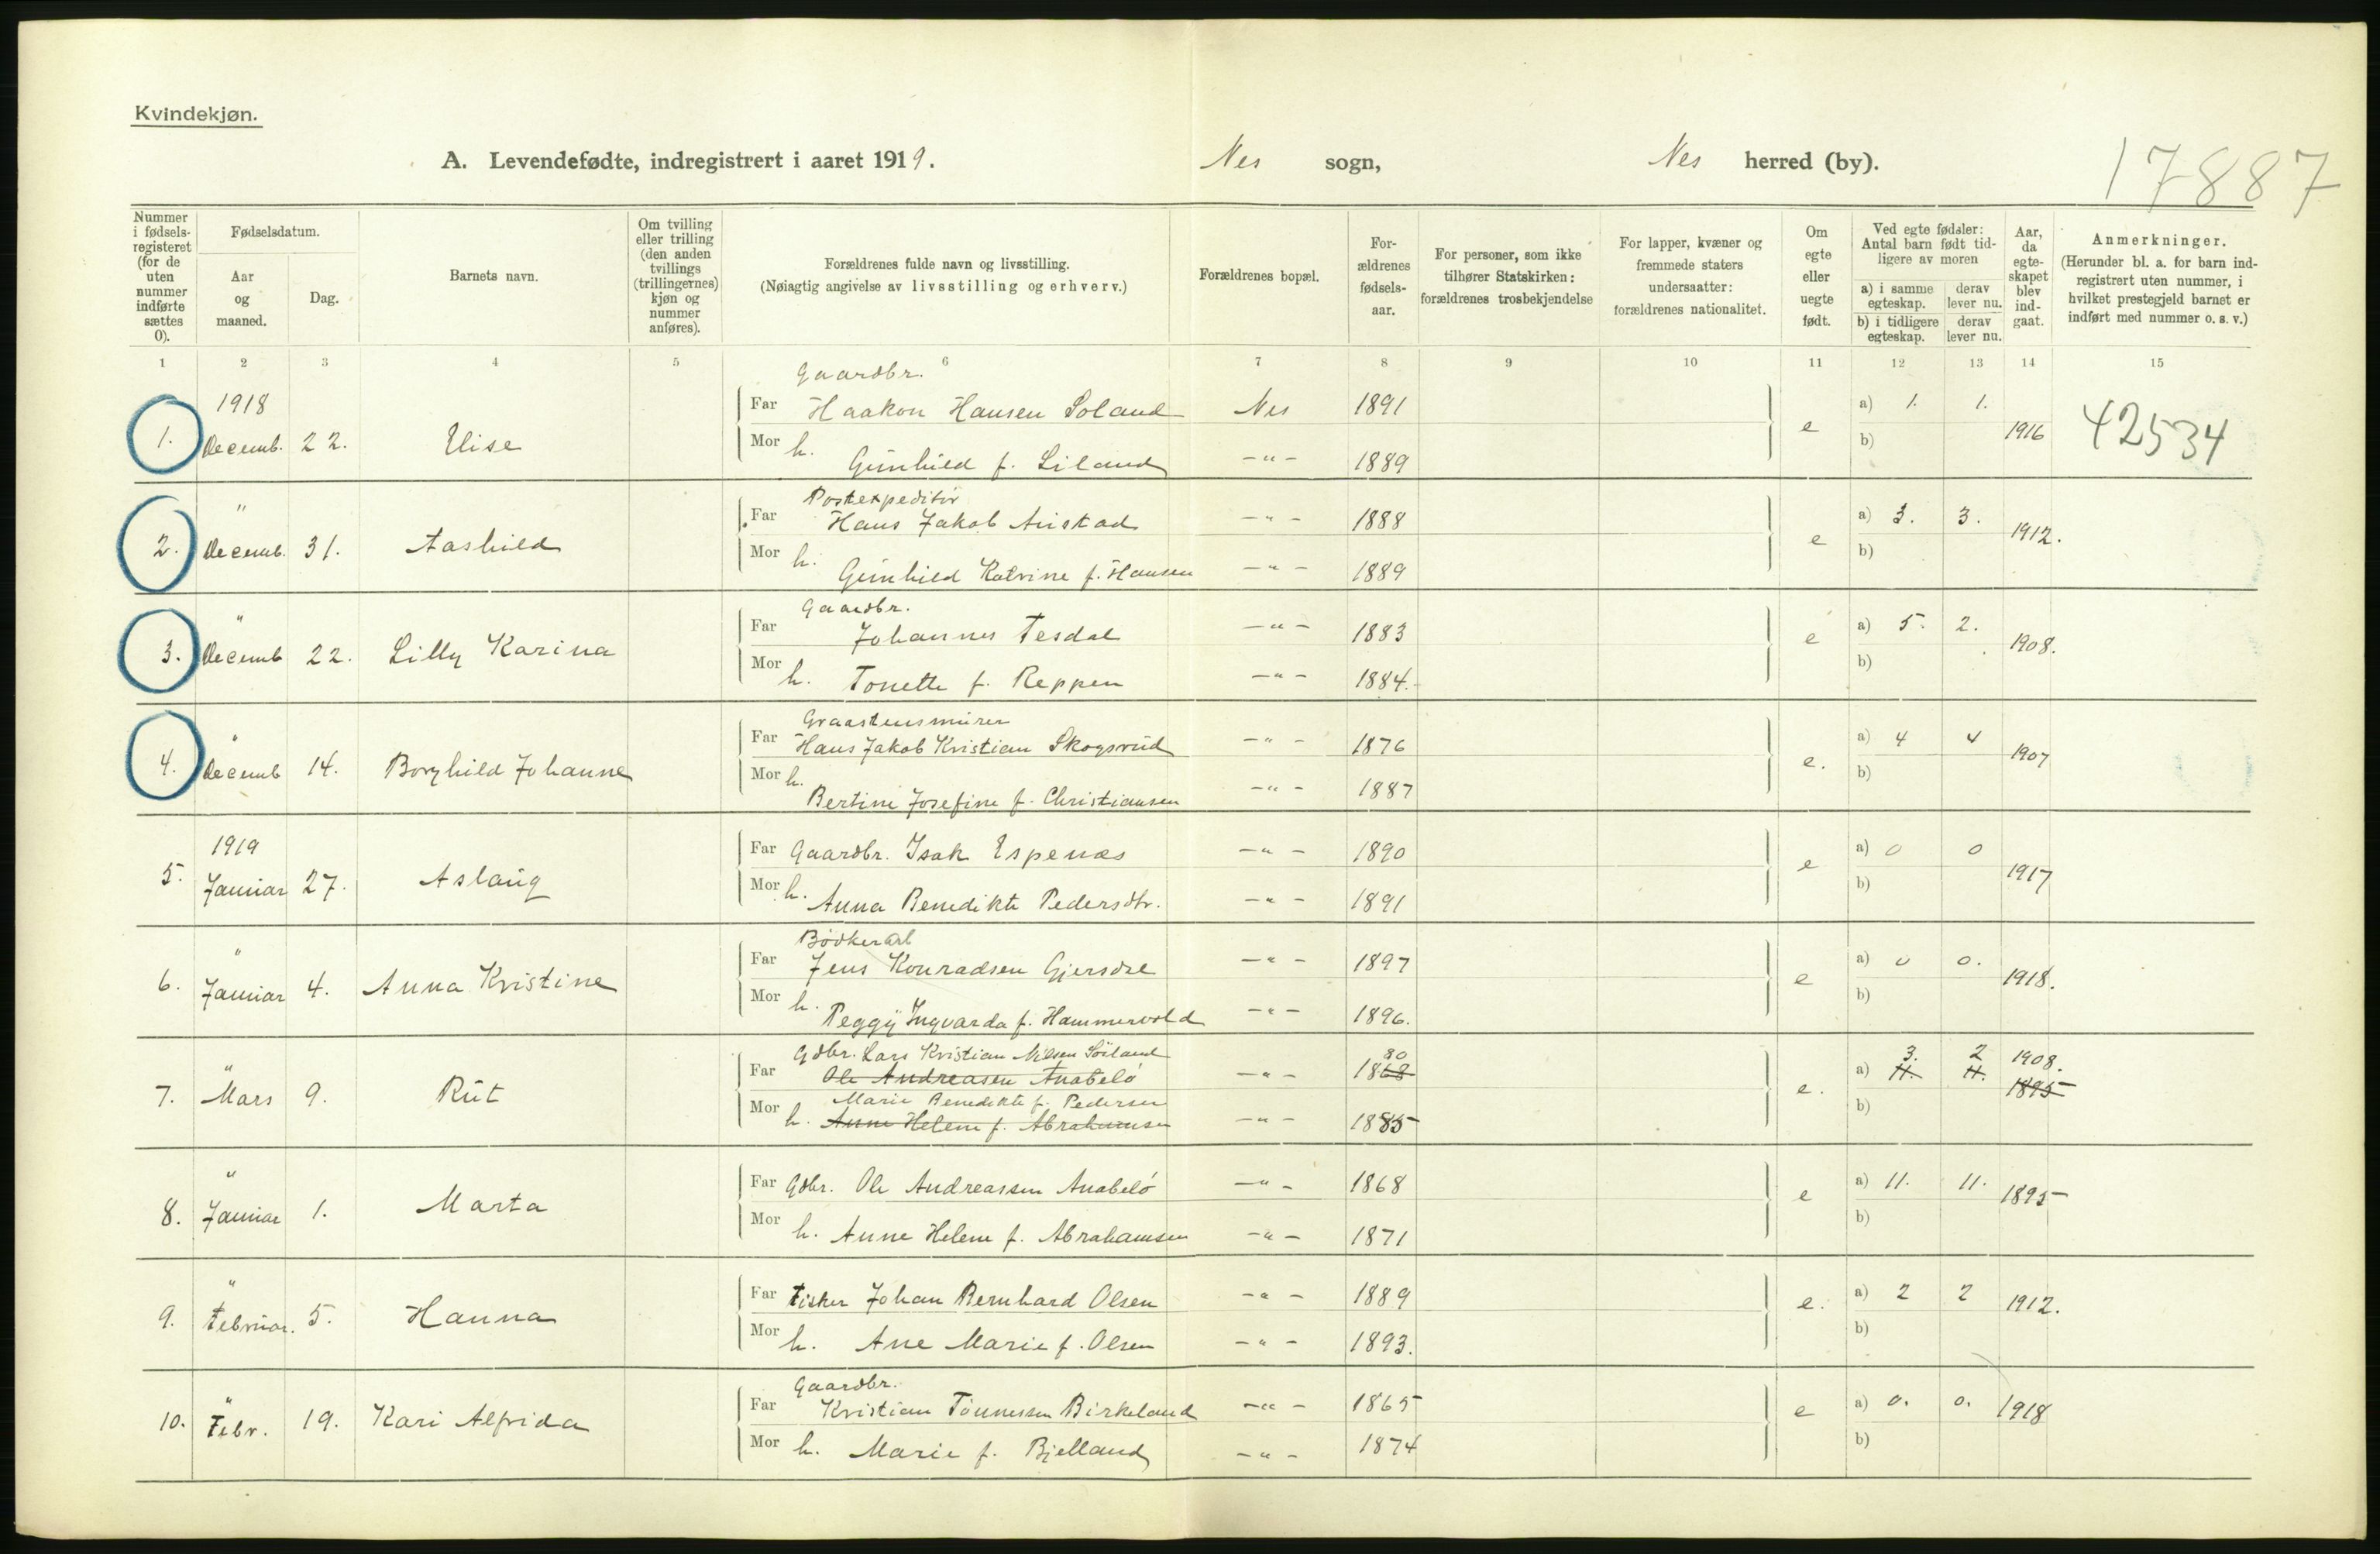 Kvindekjøn.
A. Levendefødte, indregistrert i aaret 1919. Nes sogn, Nes herred (by).
17887
Nummer i fødsels-registeret (for de uten nummer indførte sættes 0).
Fødselsdatum.
Aar og maaned.
Dag.
Barnets navn.
Om tvilling eller trilling (den anden tvillings (trillingernes) kjøn og nummer anføres).
Forældrenes fulde navn og livsstilling.
(Nøiagtig angivelse av livsstilling og erhverv.)
Forældrenes bopæl.
For-ældrenes fødsels-aar.
For personer, som ikke tilhører Statskirken: forældrenes trosbekjendelse
For lapper, kvæner og fremmede staters undersaatter: forældrenes nationalitet.
Om egte eller uegte født.
Ved egte fødsler: Antal barn født tid-ligere av moren
a) i samme egteskap. derav lever nu.
b) i tidligere egteskap. derav lever nu.
Aar, da egte-skapet blev ind-gaat.
Anmerkninger.
(Herunder bl. a. for barn ind-registrert uten nummer, i hvilket prestegjeld barnet er indført med nummer o. s. v.)
1 2 3 4 5 6 7 8 9 10 11 12 13 14 15
Gaardbr.
1918 Far Haakon Hansen Soland Nes 1891 a) 1. 1.
1. Decemb. 22. Elise e 1916 42534
Mor h. Gunhild f. Liland -"- 1889 b)
Postexpeditör
" Far Hans Jakob Austad -"- 1888 a) 3. 3.
2. Decemb. 31. Aashild e 1912.
Mor h. Gunhild Katrine f. Hansen -"- 1889 b)
Gaardbr.
" Far Johannes Tesdal -"- 1883 a) 5. 2.
3. Decemb 22. Lilly Karina e 1908.
Mor h. Tonette f. Reppen -"- 1884. b)
Graastensmurer
" Far Hans Jakob Kristian Skogsrud -"- 1876 a) 4 4
4. Decemb 14. Borghild Johanne e. 1907
Mor h. Bertine Josefine f. Christiansen -"- 1887 b)
1919 Far Gaardbr. Isak Espenæs -"- 1890 a) 0 0
5. Januar 27. Aslaug e 1917
Mor h. Anna Benedikte Pedersdtr. -"- 1891 b)
Bödkerarb
" Far Jens Konradsen Gjersdal -"- 1897 a) 0 0.
6. Januar 4. Anna Kristine e 1918.
Mor h. Peggy Ingvarda f. Hammervold -"- 1896. b)
Gdbr. Lars Kristian Nilsen Söiland 80 3. 2 1908.
" Far Ole Andreasen Anabelö -"- 1868 a) 11. 11. 1895
7. Mars 9. Rut e.
Marie Benedikte f. Pedersen
Mor h. Anne Helene f. Abrahamsen -"- 1885 b)
" Far Gdbr. Ole Andreassen Anabelö -"- 1868 a) 11. 11.
8. Januar 1. Marta e 1895
Mor h. Anne Helene f. Abrahamsen -"- 1871 b)
" Far Fisker Johan Bernhard Olsen -"- 1889 a) 2 2
9. Februar. 5. Hanna e. 1912.
Mor h. Ane Marie f. Olsen -"- 1893. b)
Gaardbr.
" Far Kristian Tönnessen Birkeland -"- 1865 a) 0. 0.
10. Febr. 19. Kari Alfrida e 1918
Mor h. Marie f. Bjelland -"- 1874 b)